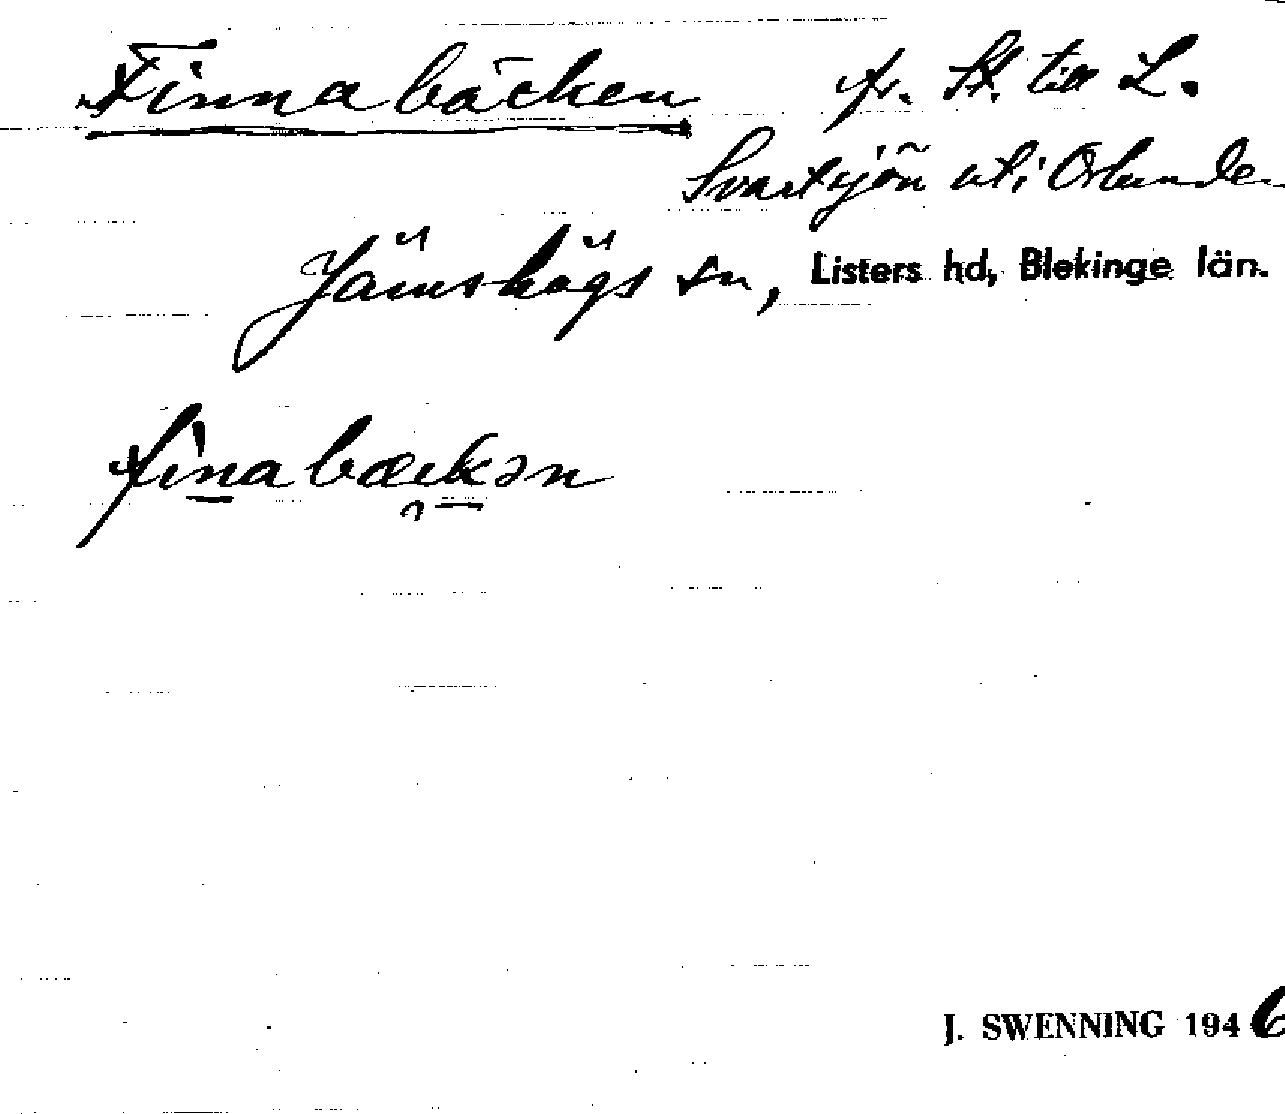 Finnabäcken fr. St. till L.
Svartsjön ut i Orlunden
Jämshögs sn, Listers hd, Blekinge län.
finabæckən
J. SWENNING 1946